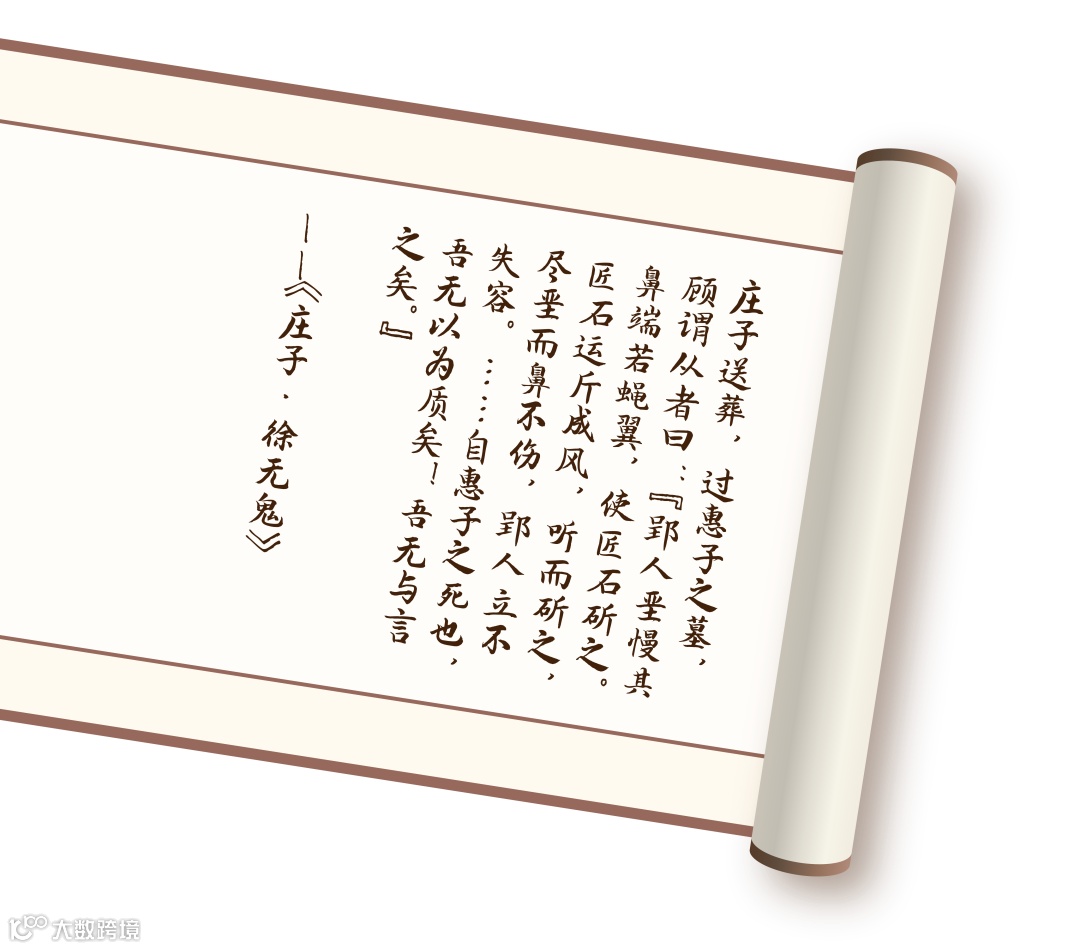 庄子送葬，过惠子之墓，
顾谓从者曰：『郢人垩慢其
鼻端若蝇翼，使匠石斫之。
匠石运斤成风，听而斫之，
尽垩而鼻不伤，郢人立不
失容。……自惠子之死也，
吾无以为质矣！吾无与言
之矣。』
——《庄子·徐无鬼》
大数跨境